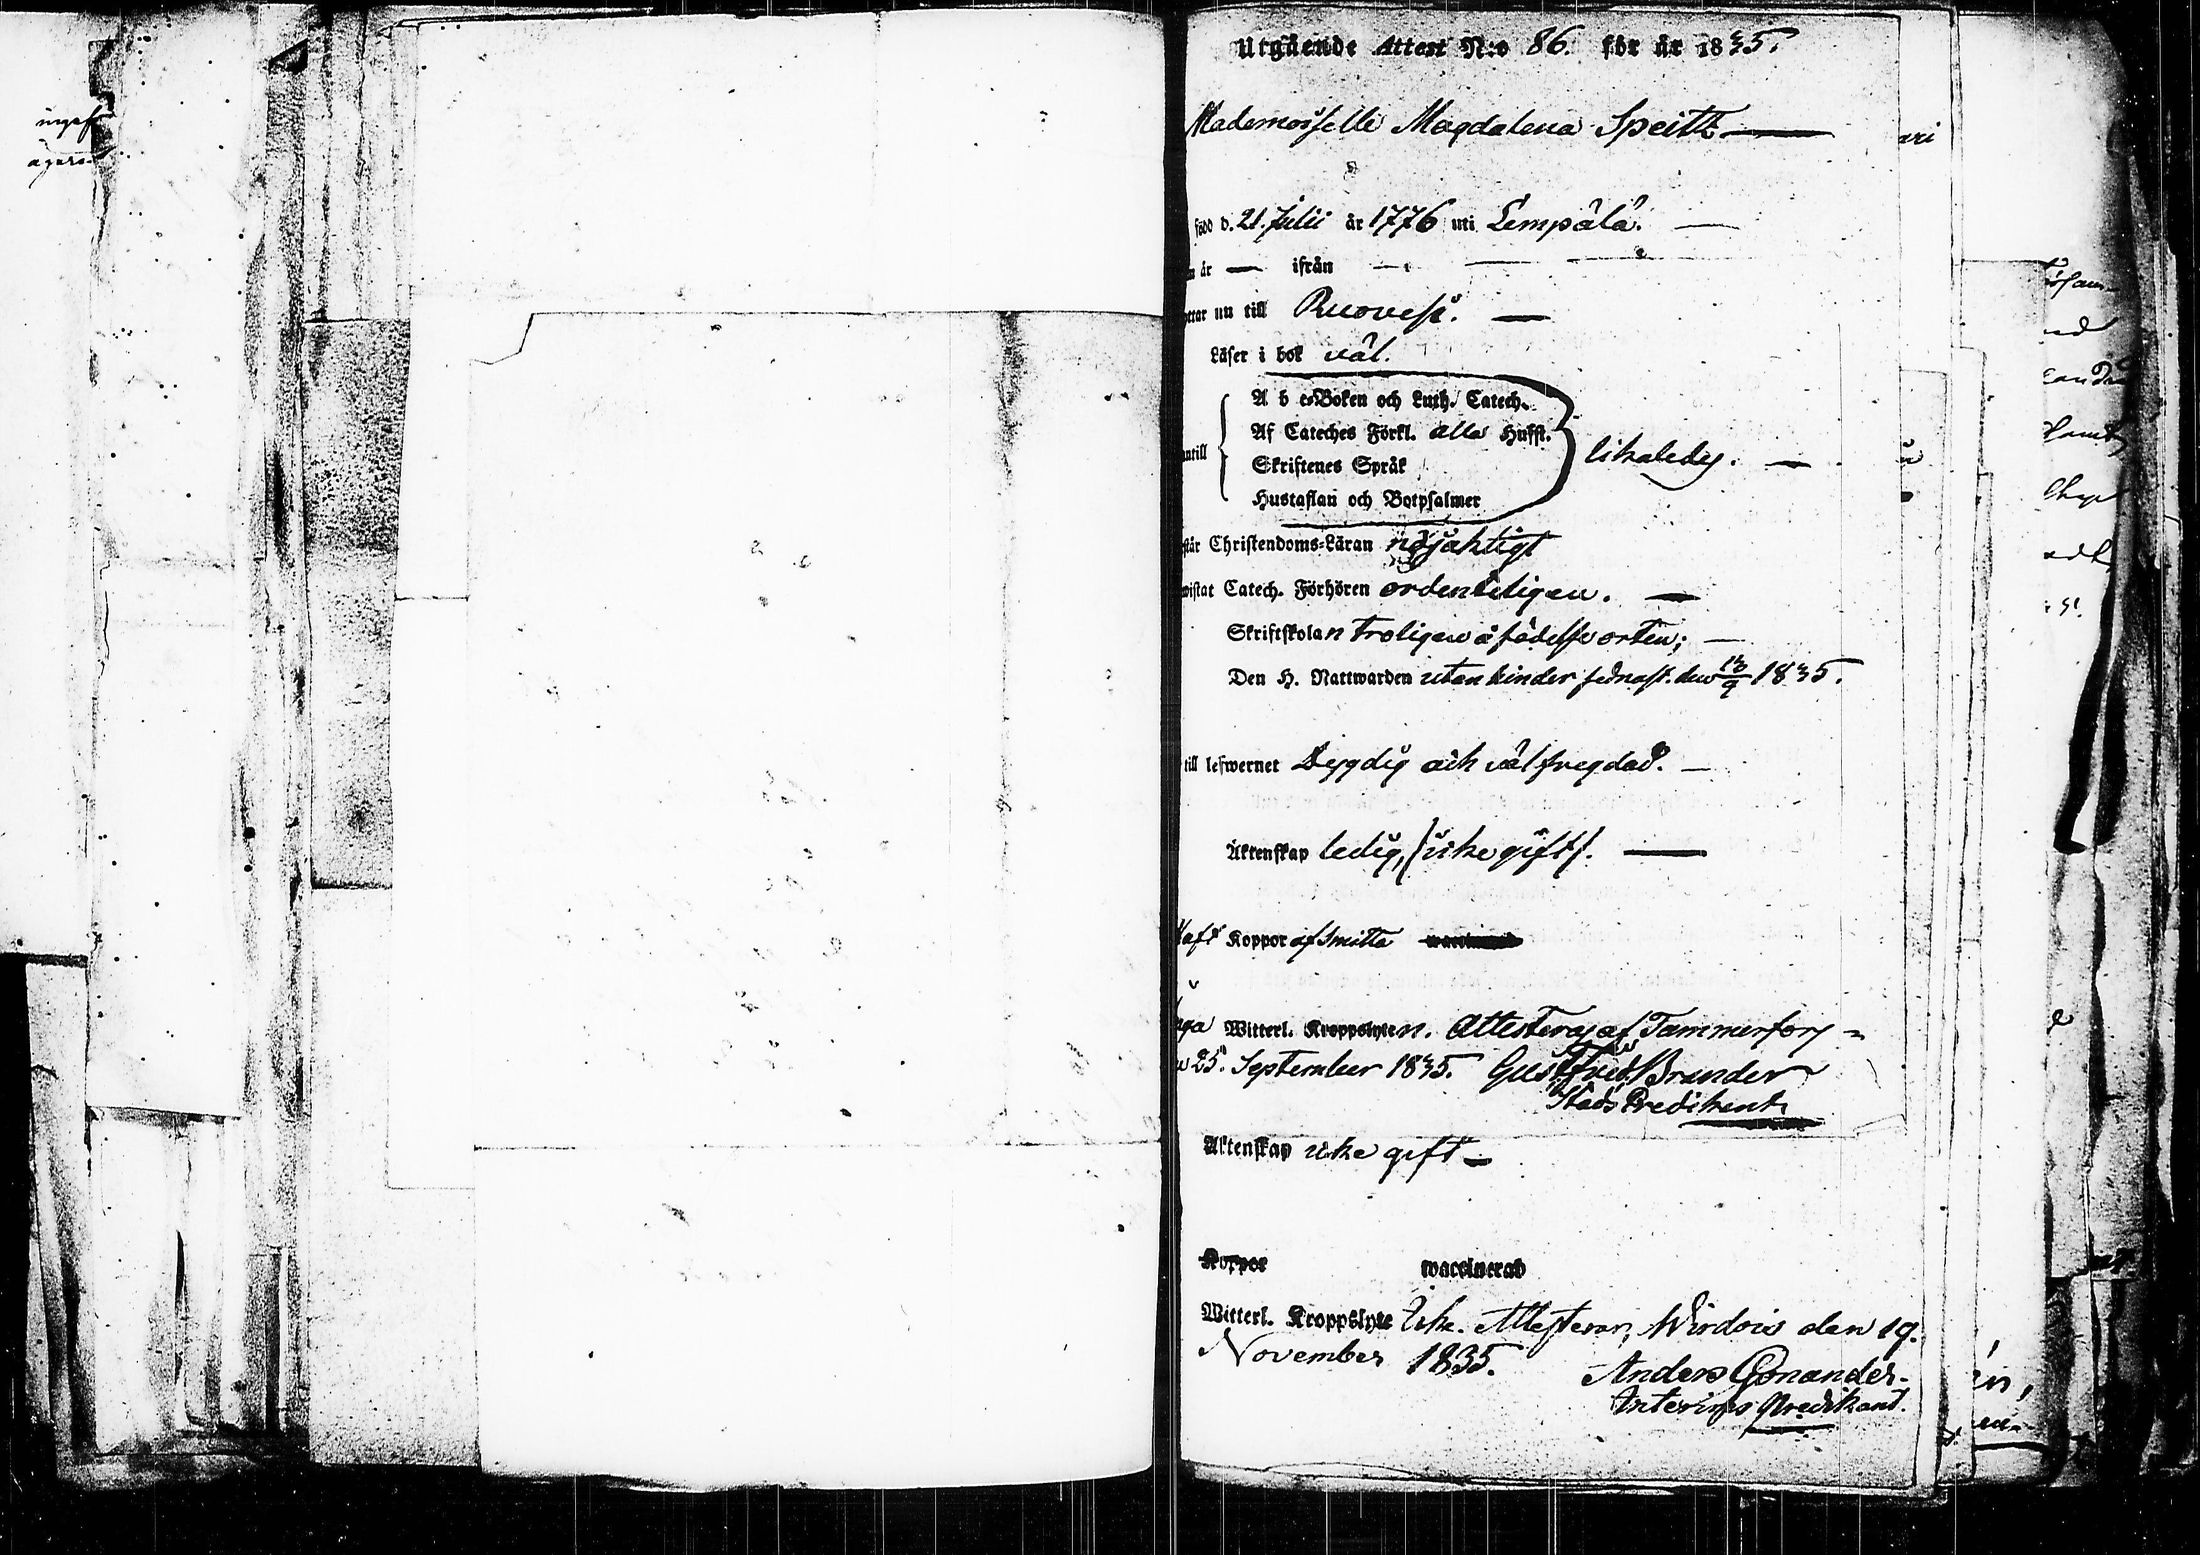 Utgående Attest N:o 86. för år 1835.
Mademoiselle Magdalena Speitz
född d. 21. Julii år 1776 uti Lempälä.
år — ifrån
nu till Ruovesi.
Läser i bok väl.
A b c-Boken och Luth. Catech.
Af Cateches Förkl. alla Hufst.
Skriftenes Språk
Hustaflan och Botpsalmer
likaledes.
Christendoms-Läran nöjaktigt
Catech. Förhören ordenteligen.
Skriftskolan troligen å födelse orten;
Den H. Nattwarden utan hinder sednast. den 13/9 1835.
till lefwernet Dygdig och välfregdad.
Äktenskap ledig, (icke gift).
Haft Koppor af Smitta
Witterl. Kroppslyten. Attesteras af Tammerfors
25. September 1835. Gust. Brander
Stads Predikant
Äktenskap icke gift
Koppor waccinerad
Witterl. Kroppslyte Icke. Attesterar, Wirdois den 19.
November 1835. Anders Gonander
Interims Predikant.